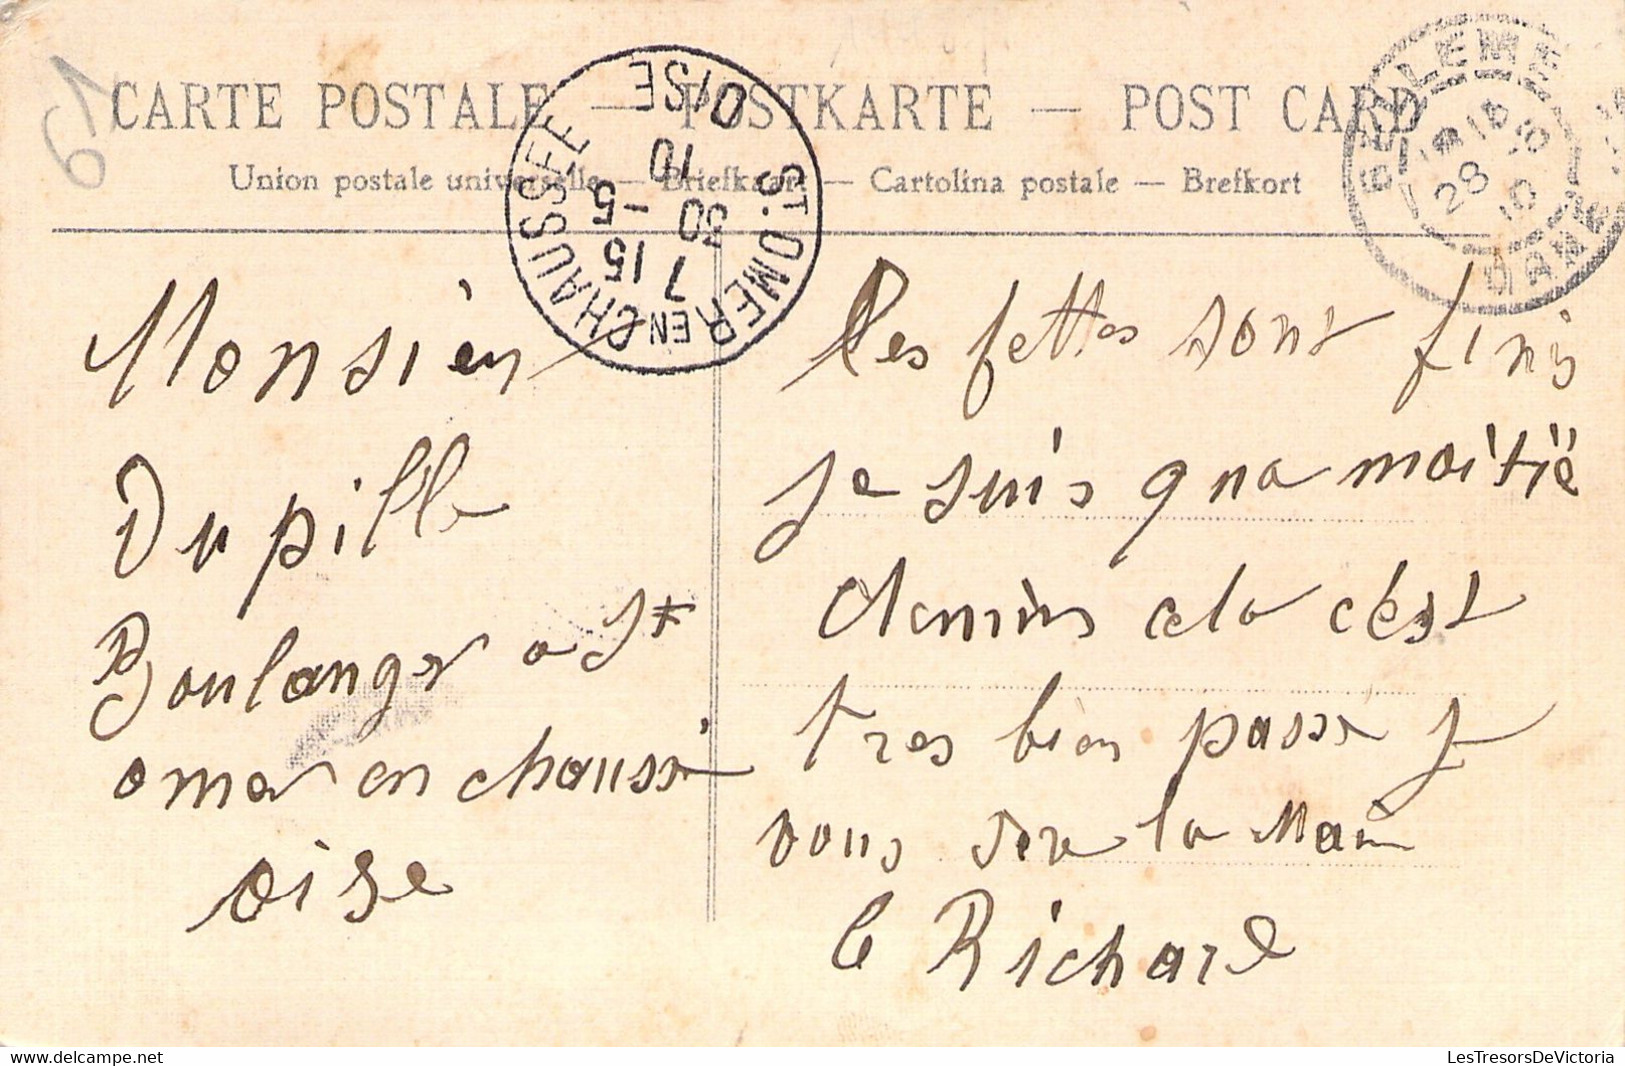 CARTE POSTALE — POSTKARTE — POST CARD
Union postale universelle — Briefkaart — Cartolina postale — Brefkort
61
ST. OMER EN CHAUSSÉE
OISE
7 15
30 -5
10
BELLEME
ORNE
28
10
Monsieu
Dupille
Boulanger a St
omer en chaussé
oise
les fettes sont finis
je suis qua moitië
chemins cela c'ést
tres bien passe je
vous sere la main
C Richard
LesTresorsDeVictoria